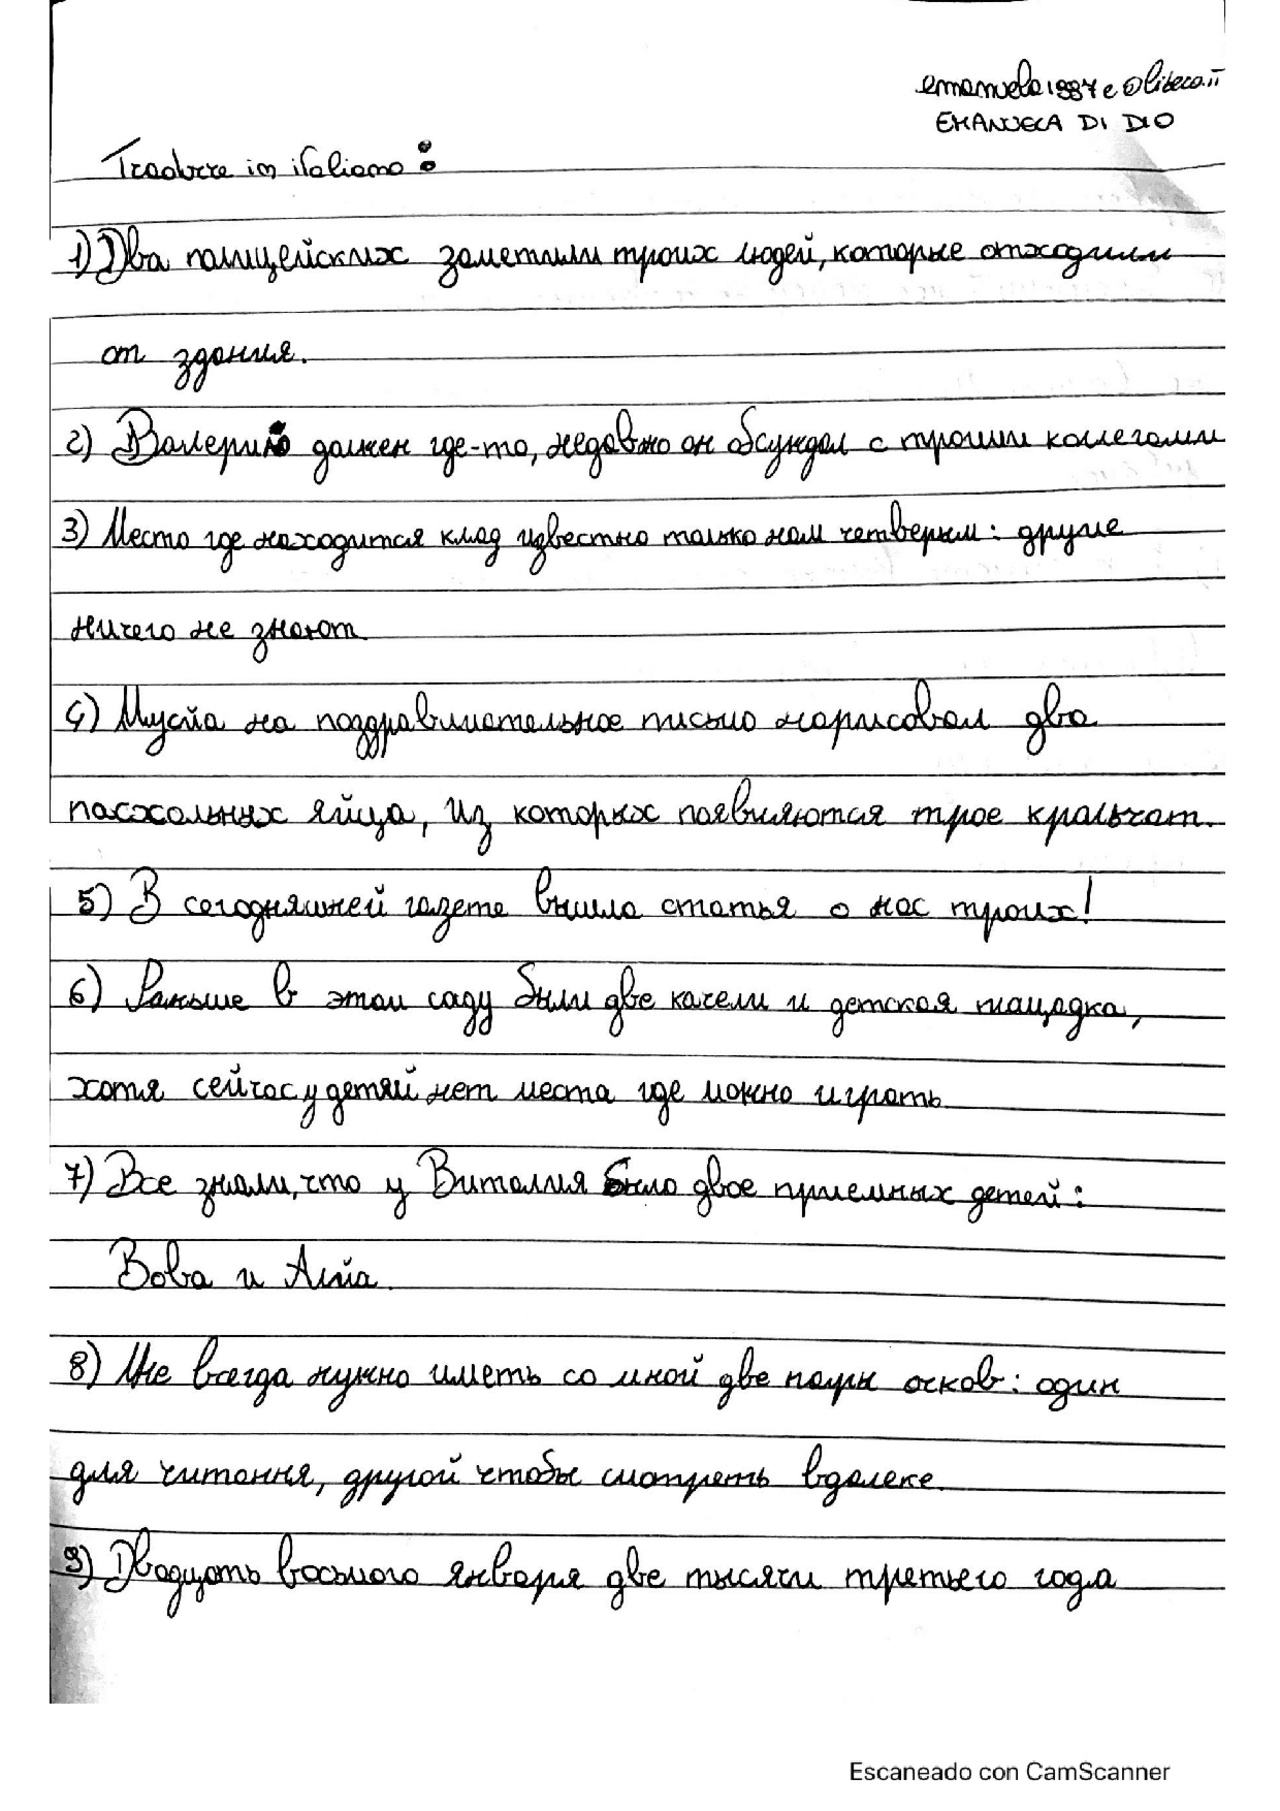 emanuela1987e@libero.it
EMANUELA DI DIO
Tradurre in italiano:
1) Два полицейских заметили троих людей, которые отходили
от здания.
2) Валерий должен где-то, недавно он обсуждал с троими коллегами
3) Место где находится клад известно только нам четверым: другие
ничего не знают.
4) Мусйа на поздравлиательное письмо нарисовал два
пасхальных яйца, из которых появляются трое кральчат.
5) В сегодняшней газете вышла статья о нас троих!
6) Раньше в этом саду были две качели и детская плащадка,
хотя сейчас у детяй нет места где можно играть.
7) Все знали, что у Виталия было двое приемных детей:
Вова и Алйа.
8) Мне всегда нужно иметь со мной две пары очков: один
для читання, другой чтобы смотреть вдалеке.
9) Двадцать восьмого января две тысячи третьего года
Escaneado con CamScanner